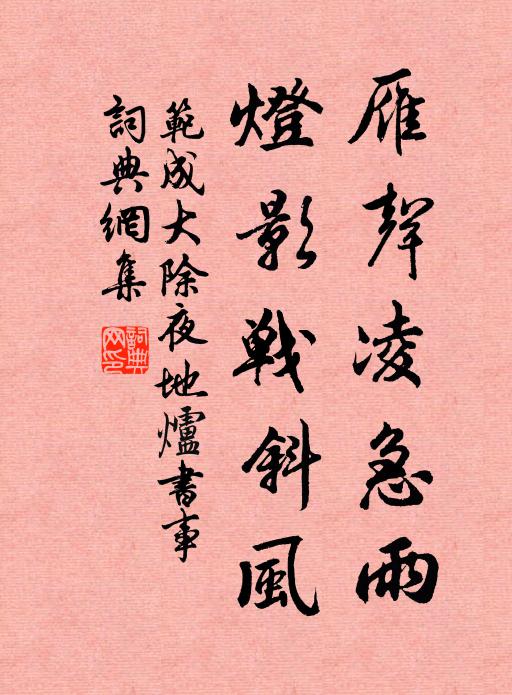 雁聲凌急雨
燈影戰斜風
範成大除夜地爐書事
詞典網集
詞典网印